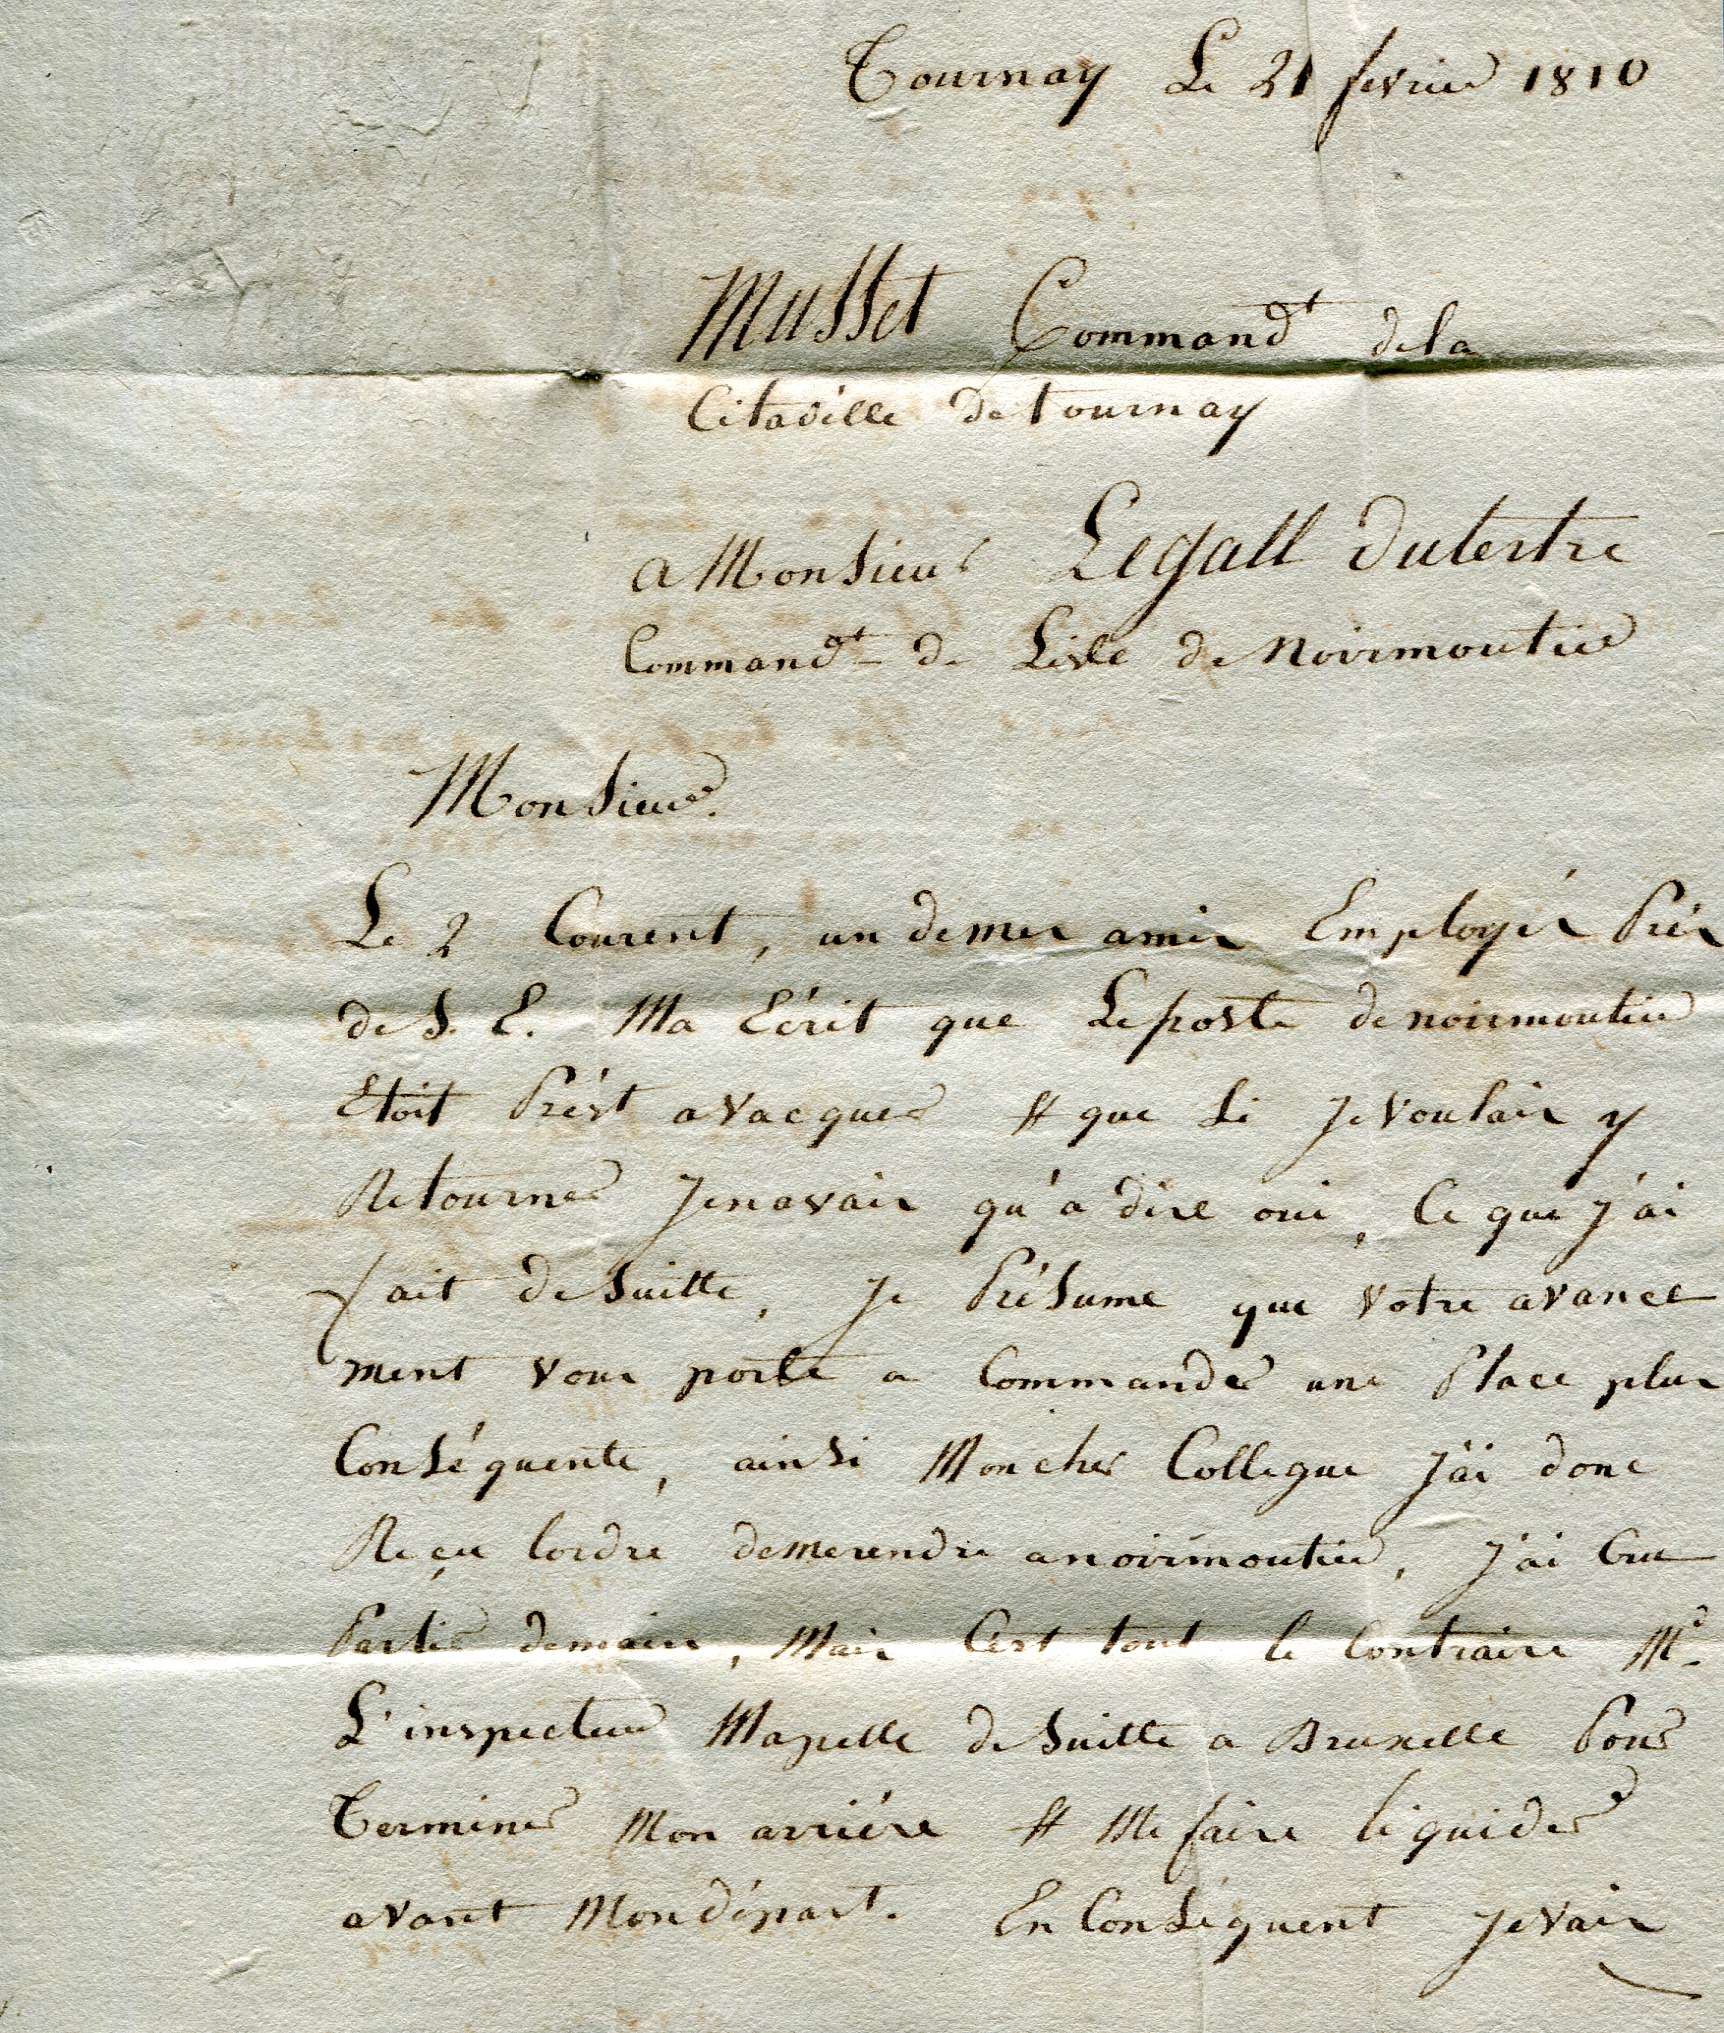 Tournay Le 21 fevrier 1810
Musset Command^t dela
Citadelle de tournay
a Monsieur Legall dutertre
Command^t de Lisle de Noirmoutier
Monsieur.
Le 2 Courent, un demes amis Employés Prés
de S. E. Ma Ecrit que Leposte denoirmoutier
Etoit Prést avacquer et que si Jevoulais y
Retourner Jenavais qu'a dire oui, Ce que J'ai
fait de Suitte, Je Présume que votre avance
ment vous porte a Commander une Place plus
Conséquente, ainsi Moncher Collegue J'ai donc
Reçu lordre demerendre anoirmoutier, J'ai Cru
Partir demain, Mais C'est tout le Contraire M^r.
L'inspecteur Mapelle de Suitte a Bruxelle Pour
Terminer Mon arriére et Me faire liquider
avant Mondépart. En Conséquent Jevais